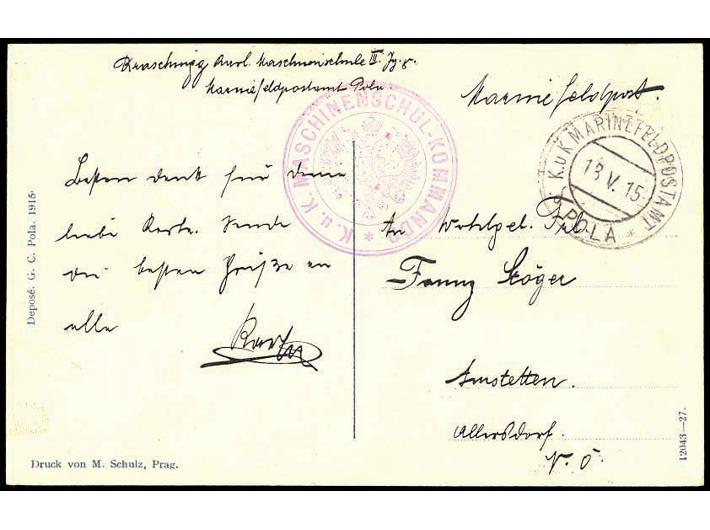 Maschinenschule III. Jg.
Marinefeldpostamt Pola
Marinefeldpost.
K. u. K. MASCHINENSCHUL-KOMMANDO *
K.u.K. MARINEFELDPOSTAMT
18 V. 15
* POLA *
Besten dank für deine
liebe Karte. Sende
die besten Grüße an
alle
An wohlgel. Frl.
Fanny Stöger
Amstetten.
Allersdorf.
N. Ö
Deposé. G. C. Pola. 1915·
Druck von M. Schulz, Prag.
12043—27.